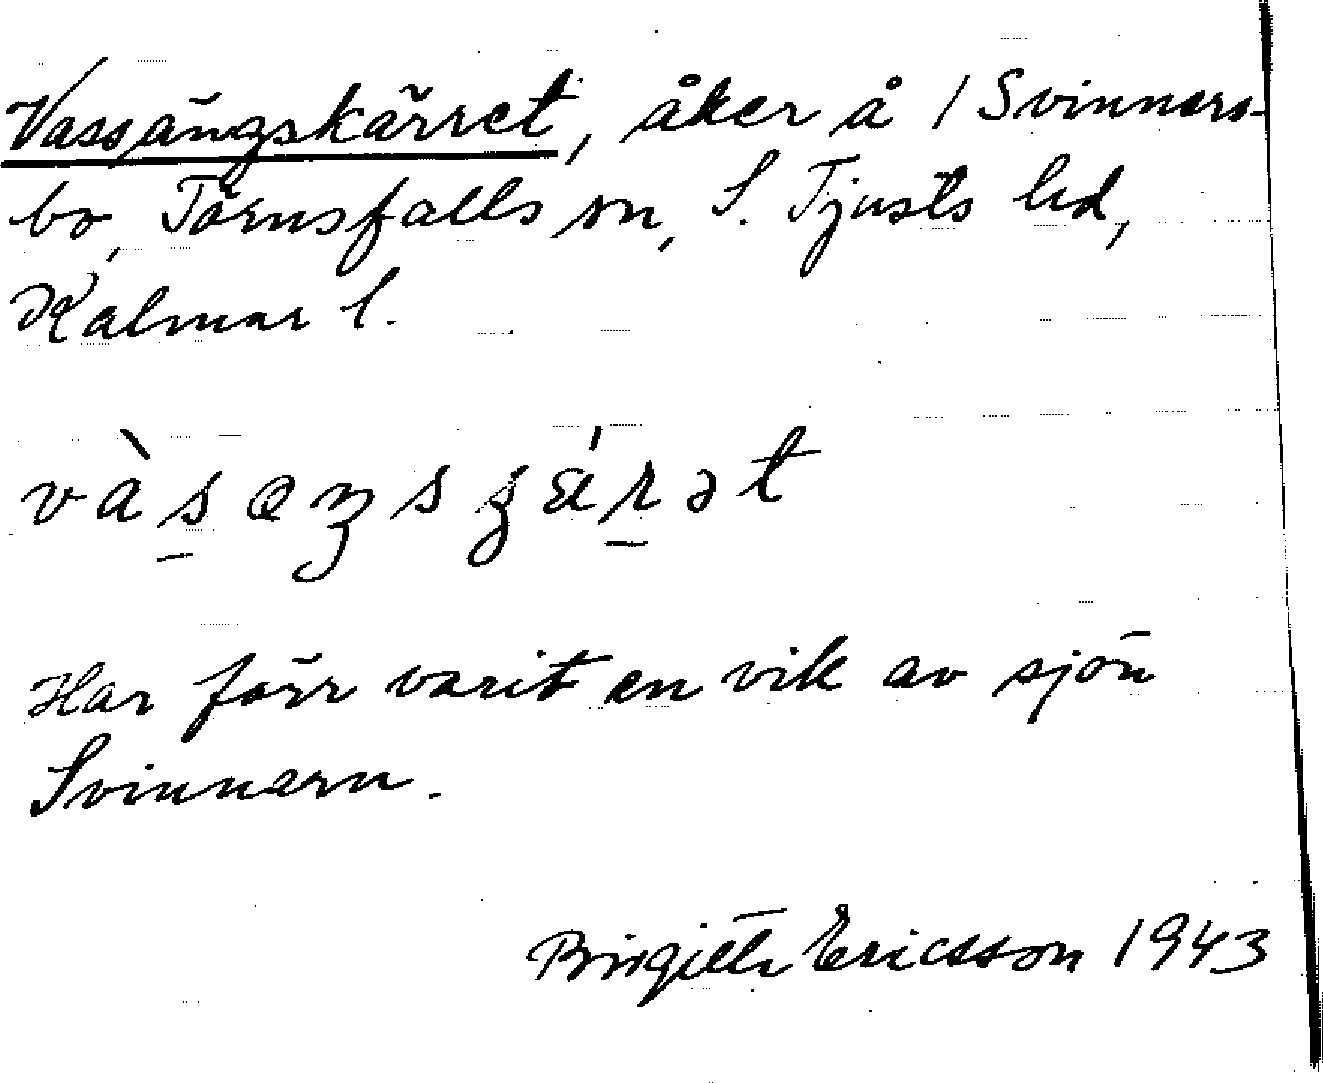 Vassängskärret, åker å 1 Svinnars-
bo, Törnsfalls sn, S. Tjusts hd,
Kalmar l.
Har förr varit en vik av sjön
Svinnarn.
Birgitta Ericsson 1943